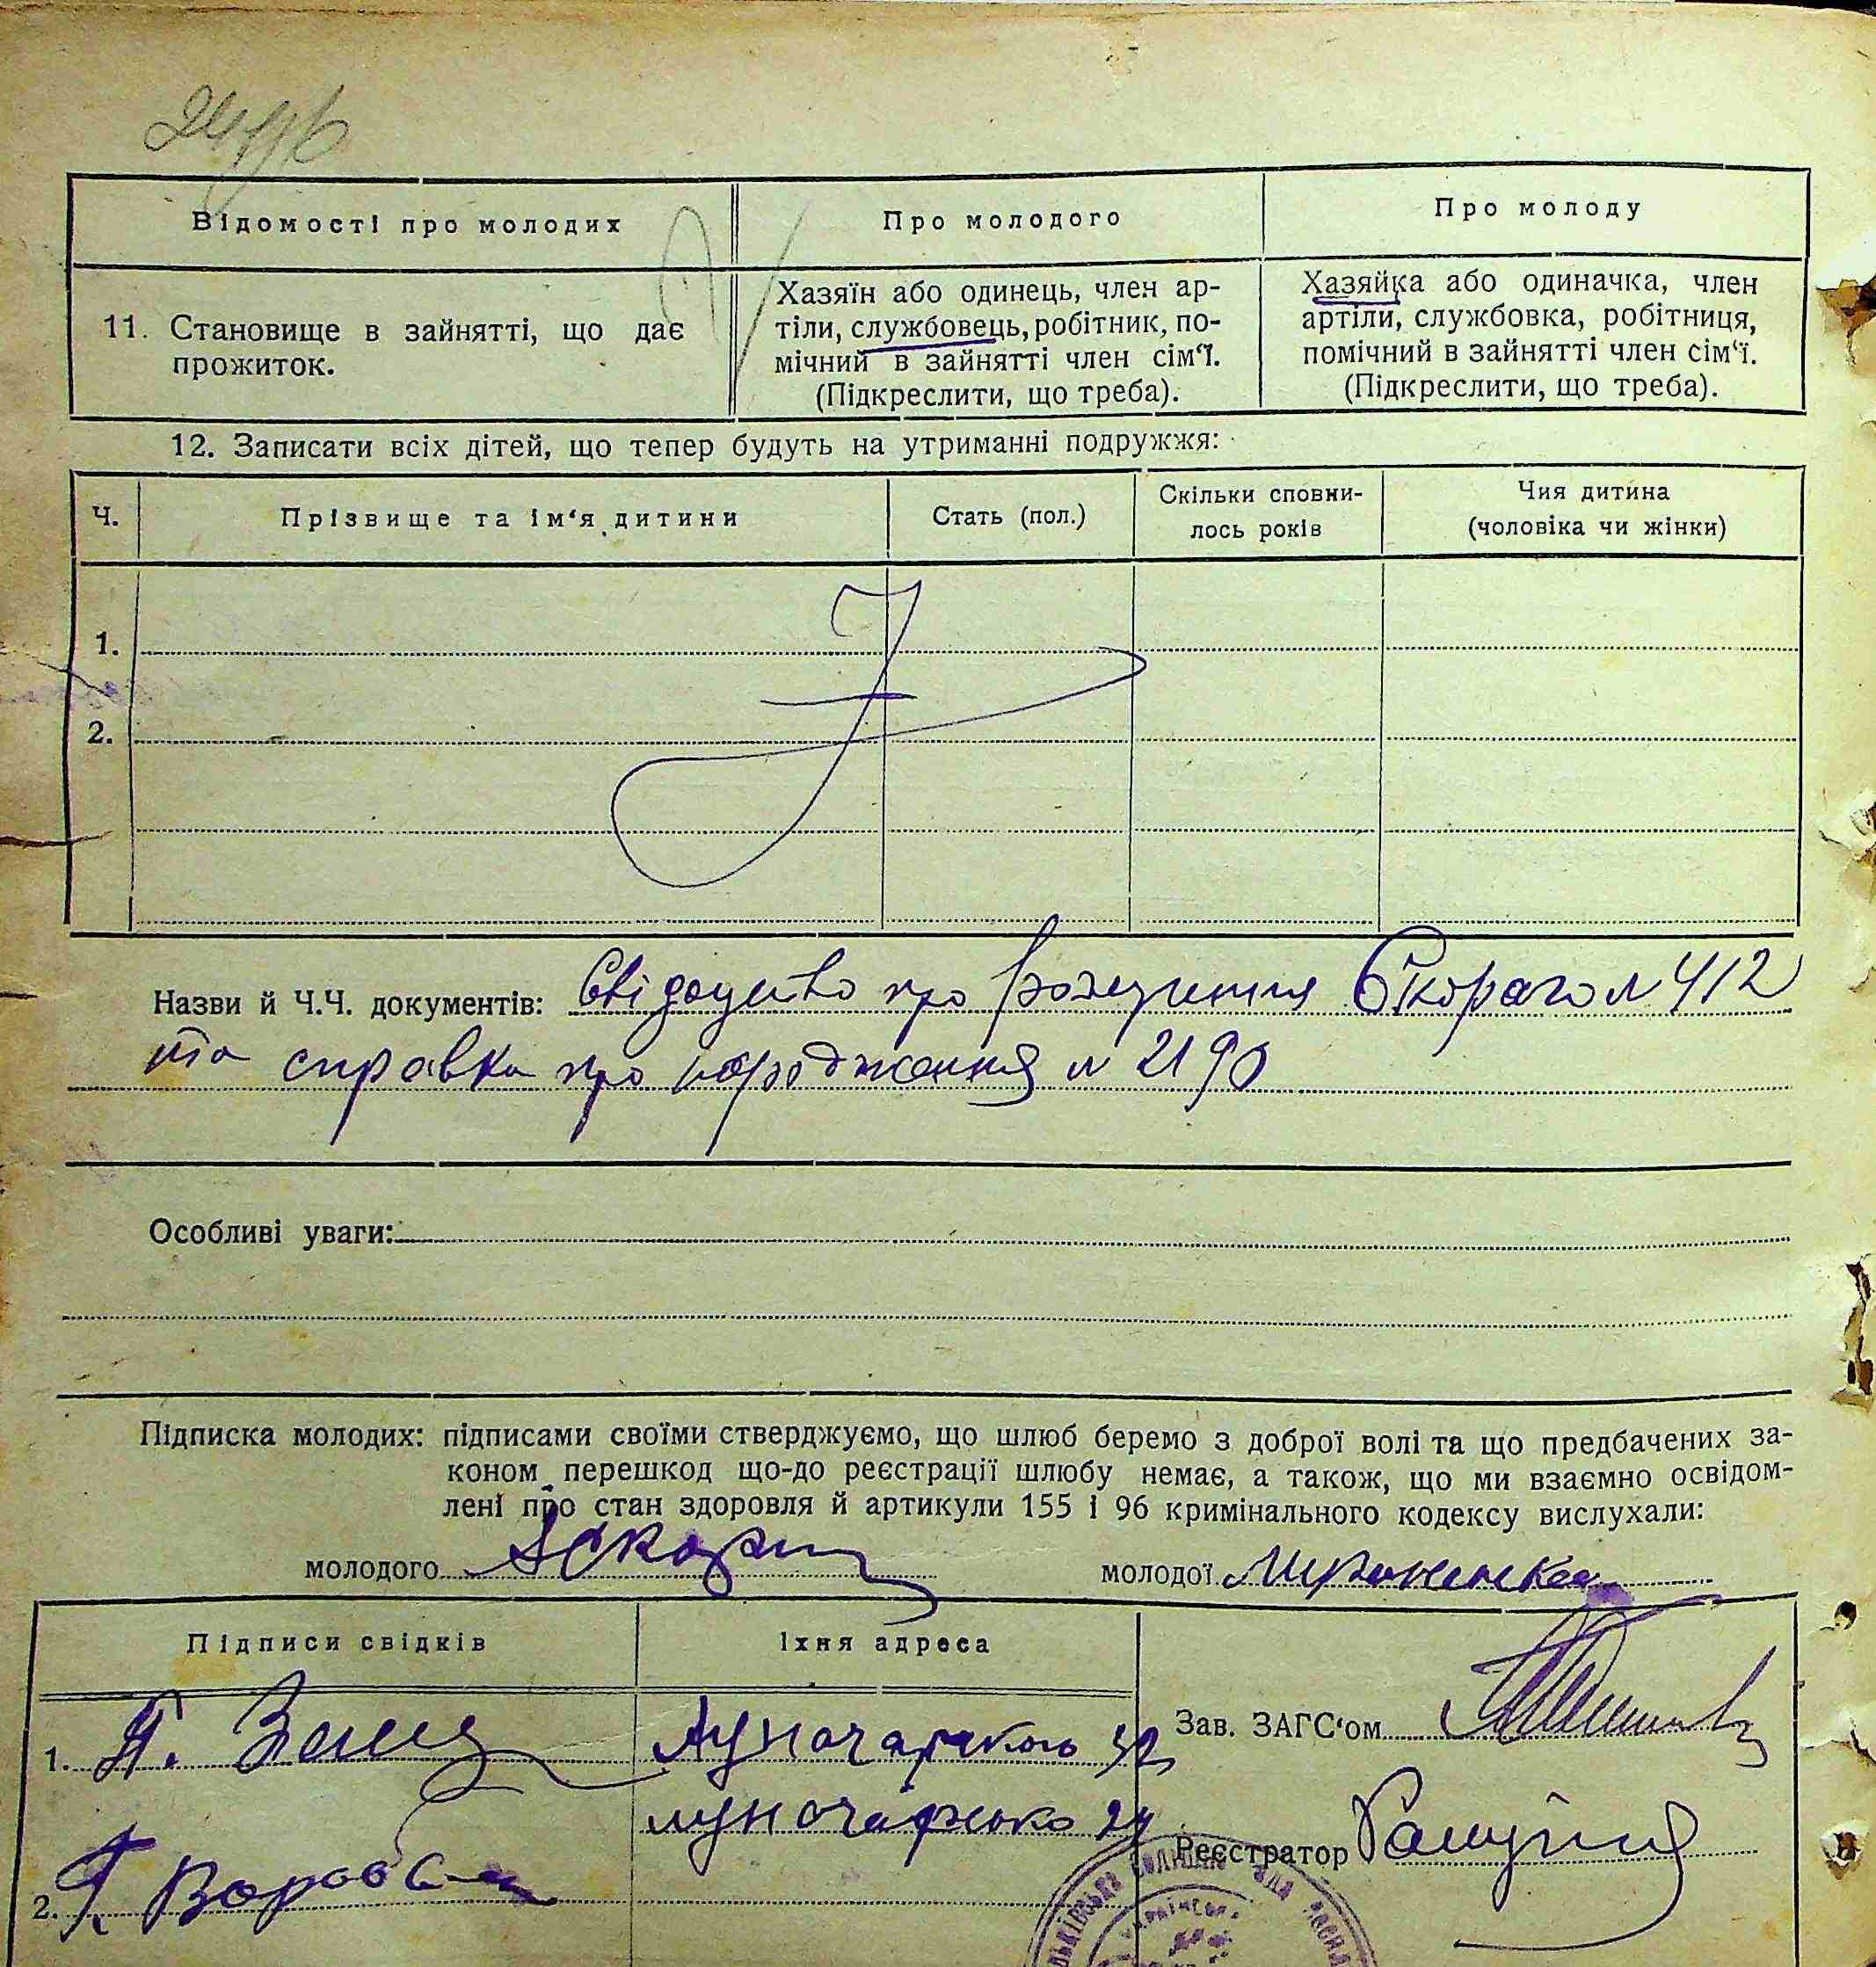 Відомості про молодих
Про молодого
Про молоду
11. Становище в зайнятті, що дає
прожиток.
Хазяїн або одинець, член ар-
тіли, службовець, робітник, по-
мічний в зайнятті член сім‘ї.
(Підкреслити, що треба).
Хазяйка або одиначка, член
артіли, службовка, робітниця,
помічний в зайнятті член сім‘ї.
(Підкреслити, що треба).
12. Записати всіх дітей, що тепер будуть на утриманні подружжя:
Ч.
Прізвище та ім‘я дитини
Стать (пол.)
Скільки сповни-
лось років
Чия дитина
(чоловіка чи жінки)
1.
2.
Назви й Ч.Ч. документів: Свідоцтво про Скораго N 412
та справка про народження N 2190
Особливі уваги:
Підписка молодих: підписами своїми стверджуємо, що шлюб беремо з доброї волі та що предбачених за-
коном перешкод що-до реєстрації шлюбу немає, а також, що ми взаємно освідом-
лені про стан здоровля й артикули 155 і 96 кримінального кодексу вислухали:
молодого
молодої
Підписи свідків
Їхня адреса
1.
Луначарського 32
Зав. ЗАГС‘ом
Луначарсько 24
Реєстратор
2.